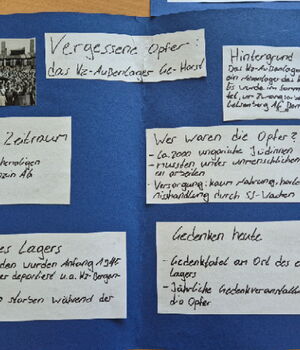 Vergessene Opfer:
das KZ-Außenlager Ge-Horst
Hintergrund
Das KZ-Außenlager
ein Außenlager des
Es wurde im Somm
tet, um Zwangsar
Gelsenberg AG
Zeitraum
hemaligen
nzin AG
Wer waren die Opfer?
- Ca. 2000 ungarische Jüdinnen
- mussten unter unmenschlichen
en arbeiten
- Versorgung: kaum Nahrung, harte
misshandlung durch SS-Wachen
es Lagers
den wurden Anfang 1945
er deportiert u.a. KZ-Bergen-
o starben während der
Gedenken heute
- Gedenktafel am Ort des e
lagers
- Jährliche Gedenkveranstalt
die Opfer